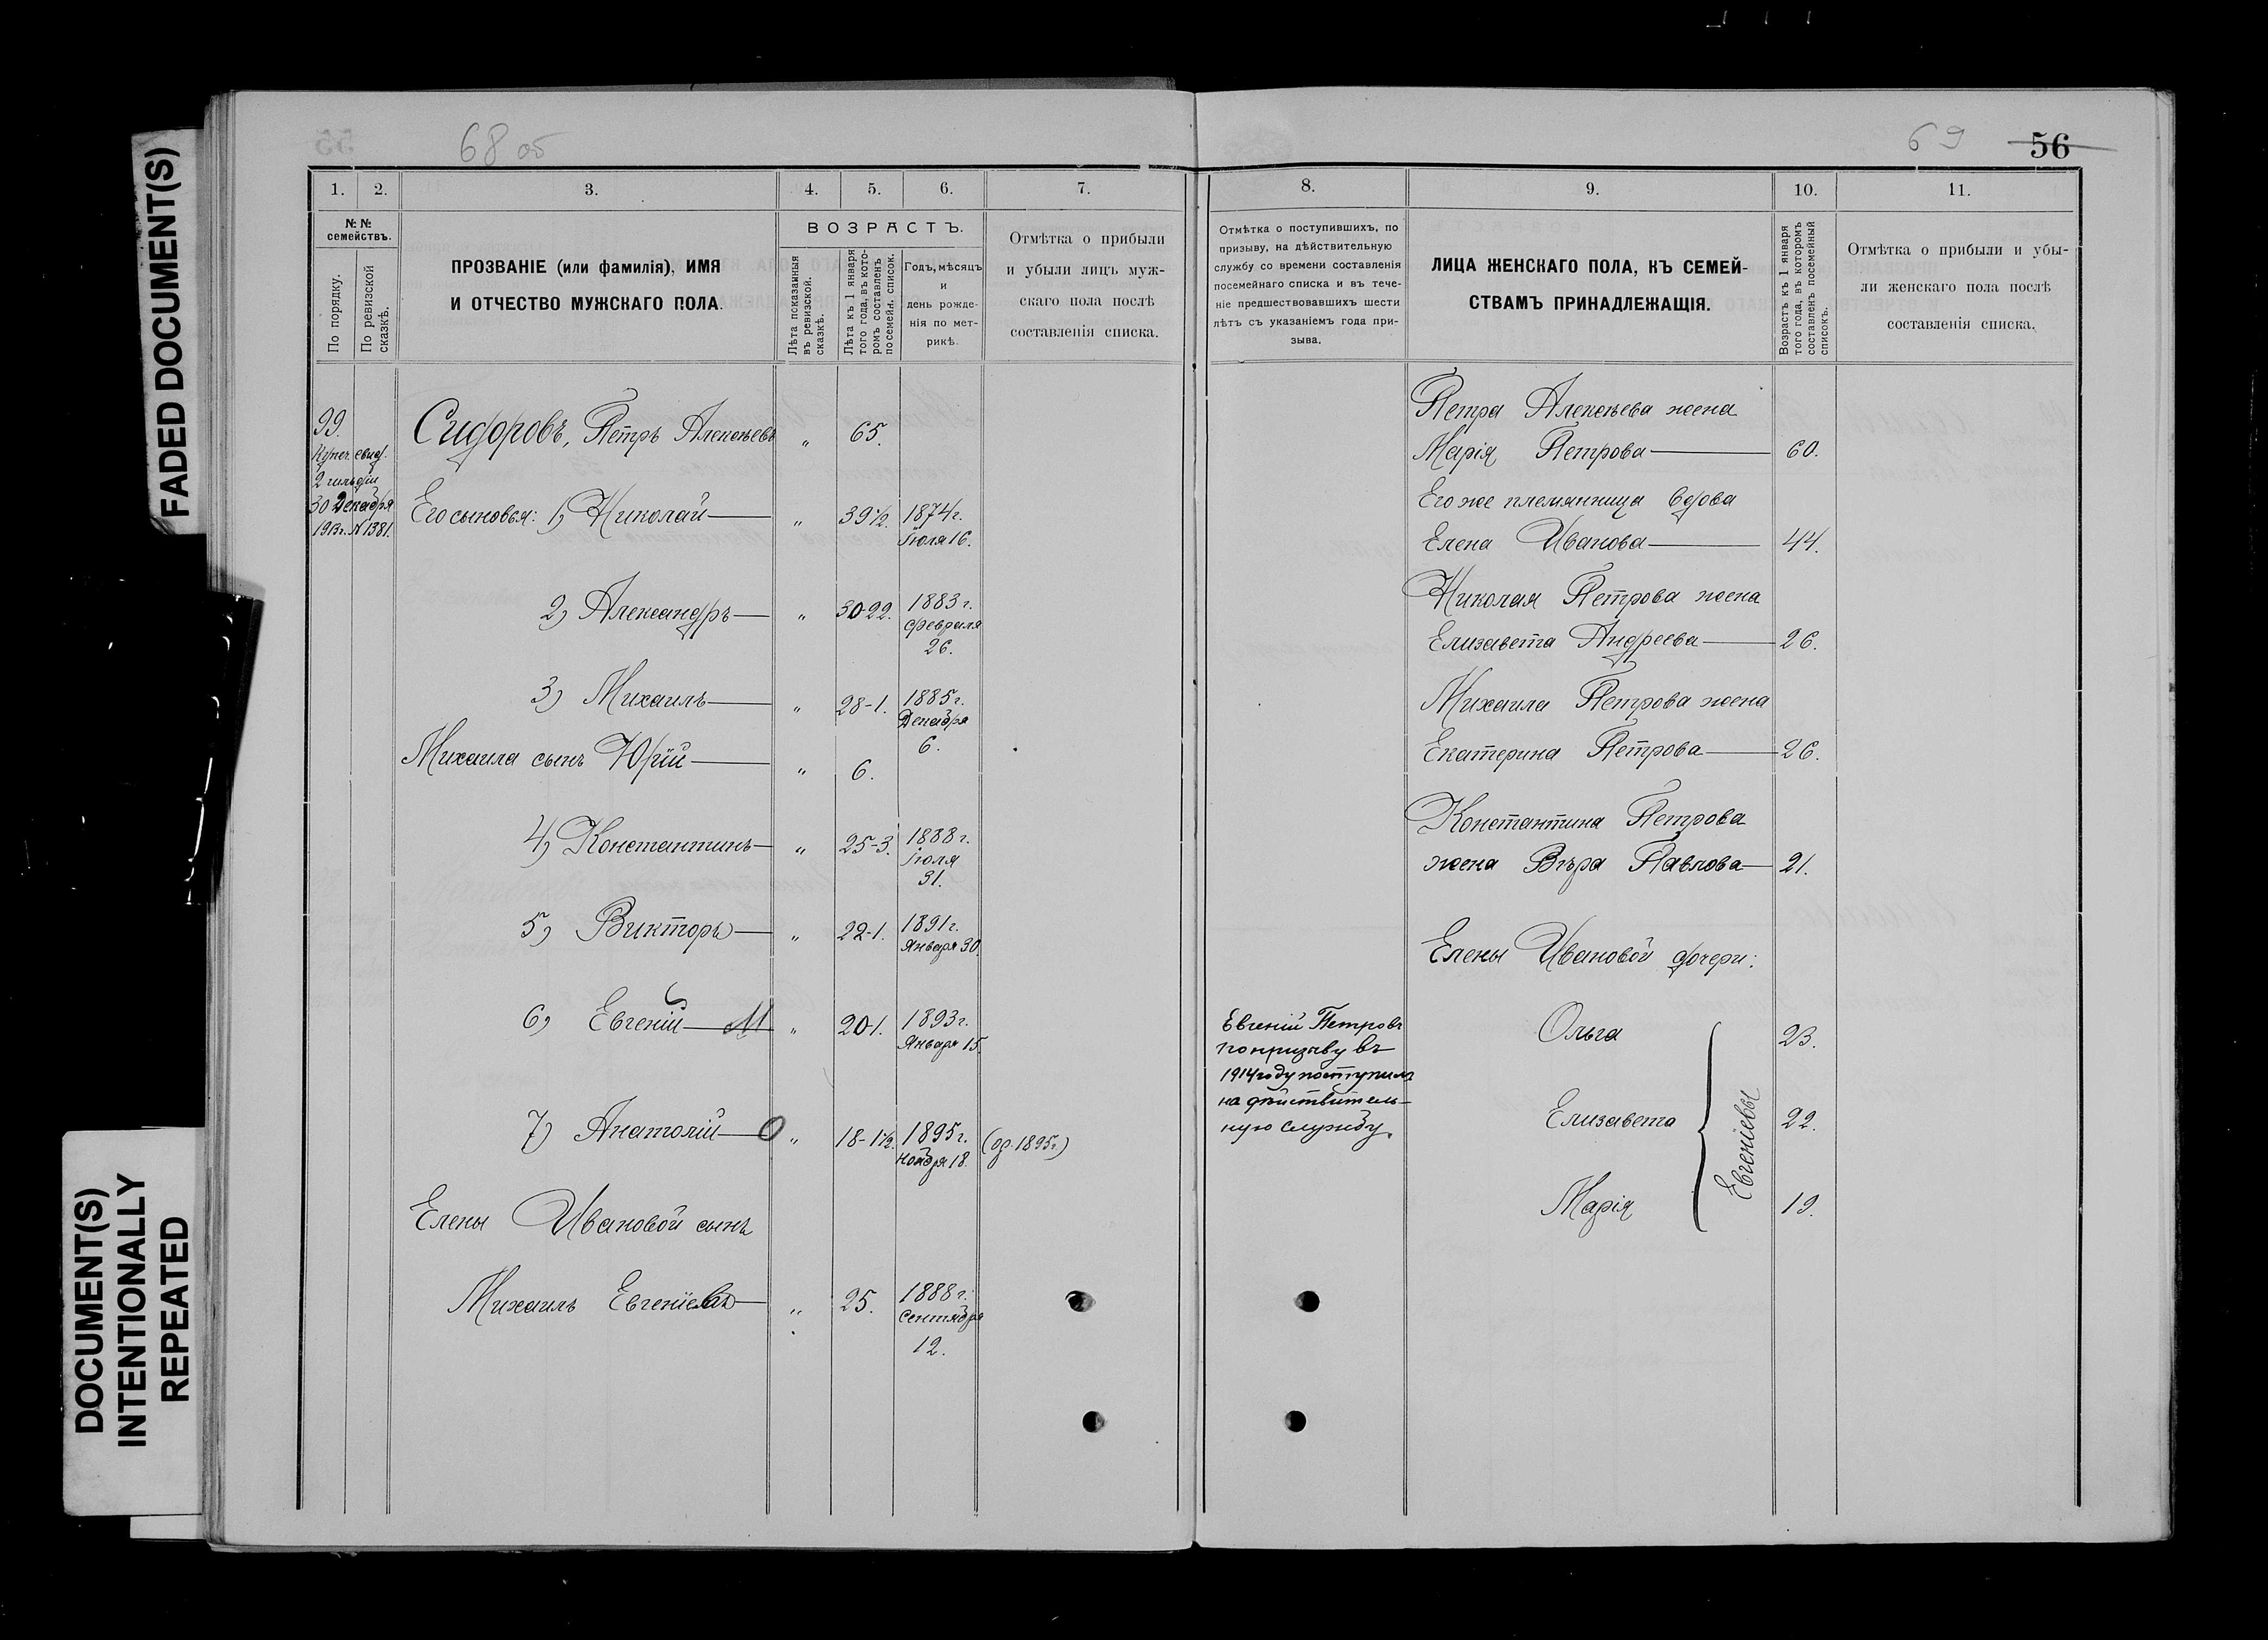 FADED DOCUMENT(S)
DOCUMENT(S)
INTENTIONALLY
REPEATED
68 об
1. 2. 3. 4. 5. 6. 7.
№№ семействъ.
По порядку.
По ревизской сказкѣ.
ПРОЗВАНІЕ (или фамилія), ИМЯ
И ОТЧЕСТВО МУЖСКАГО ПОЛА.
ВОЗРАСТЪ.
Лѣта показанныя
въ ревизской.
сказкѣ.
Лѣта къ 1 января
того года, въ кото-
ромъ составленъ
посемейн. список.
Годъ, мѣсяцъ
и
день рожде-
нія по мет-
рикѣ.
Отмѣтка о прибыли
и убыли лицъ муж-
скаго пола послѣ
составленія списка.
99.
Купеч. свид.
2 гильдіи
30 Декабря
1913г. № 1381.
Сидоровъ, Петръ Алексѣевъ „ 65.
Его сыновья: 1) Николай — „ 39 1/2. 1874г.
Іюля 16.
2) Александръ — „ 30-22. 1883 г.
февраля
26.
3) Михаилъ — „ 28-1. 1885г.
Декабря
6.
Михаила сынъ Юрій — „ 6.
4) Константинъ — „ 25-3. 1888 г.
Іюля
31.
5) Викторъ — „ 22-1. 1891г.
Января 30.
6) Евгеній — М „ 20-1. 1893г.
Января 15.
7) Анатолій — О „ 18-1 1/2. 1895г. (ор. 1895г.)
Ноября 18.
Елены Ивановой сынъ
Михаилъ Евгеніевъ — „ 25. 1888г.
Сентября
12.
69 56
8. 9. 10. 11.
Отмѣтка о поступившихъ, по
призыву, на дѣйствительную
службу со времени составленія
посемейнаго списка и въ тече-
ніе предшествовавшихъ шести
лѣтъ съ указаніемъ года при-
зыва.
ЛИЦА ЖЕНСКАГО ПОЛА, КЪ СЕМЕЙ-
СТВАМЪ ПРИНАДЛЕЖАЩІЯ.
Возрастъ къ 1 января
того года, въ которомъ
составленъ посемейный
списокъ.
Отмѣтка о прибыли и убы-
ли женскаго пола послѣ
составленія списка.
Петра Алексѣева жена
Марія Петрова — 60.
Его же племянница вдова
Елена Иванова — 44.
Николая Петрова жена
Елизавета Андреева — 26.
Михаила Петрова жена
Екатерина Петрова — 26.
Константина Петрова
жена Вѣра Павлова — 21.
Елены Ивановой дочери:
Евгеній Петровъ
по призыву въ
1914 году поступилъ
на дѣйствитель-
ную службу.
Ольга 23.
Елизавета 22.
Марія 19.
Евгеніевы